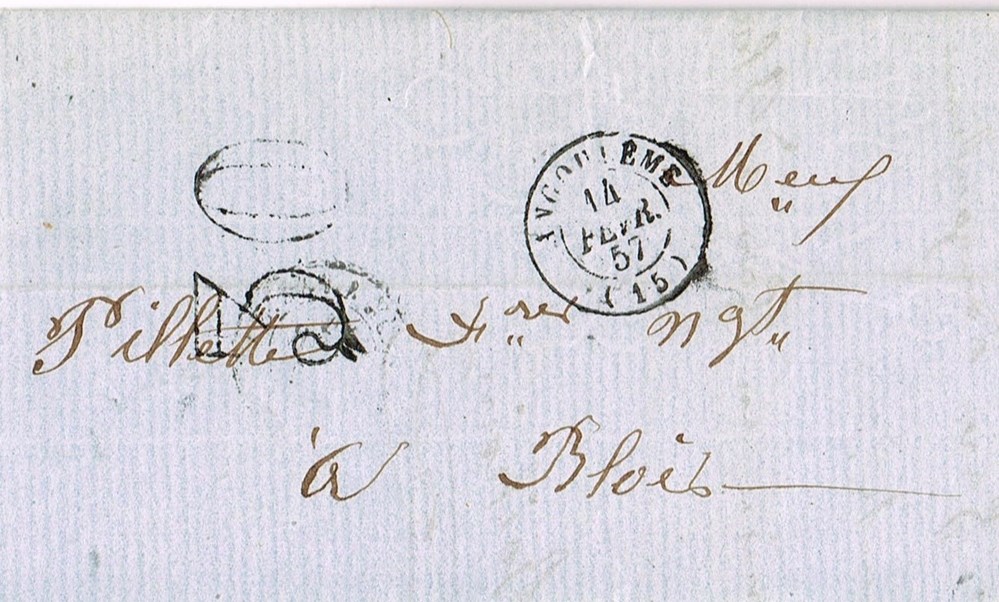 ANGOULÊME
14
FEVR.
57
(15)
Pillette Frères Ngts
à Blois